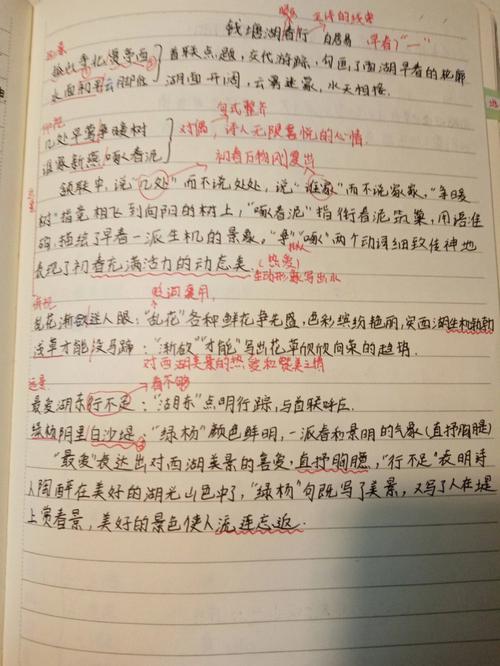 钱塘湖春行 白居易 早春"一"
孤山寺北贾亭西 首联点题,交代游踪,勾画了西湖早春的轮廓
水面初平云脚低 湖面开阔,云雾迷蒙,水天相接.
句式整齐
几处早莺争暖树
谁家新燕啄春泥
对偶,诗人无限喜悦的心情.
初春万物刚复出
颔联中,说"几处"而不说处处,说"谁家"而不说家家,"争暖
树"指竞相飞到向阳的树上,"啄春泥"指衔春泥筑巢,用语准
确,描绘了早春一派生机的景象."争""啄"两个动词细致传神地
表现了初春充满活力的动态美.(热爱)
生动形象写出
乱花渐欲迷人眼:"乱花"各种鲜花争先盛,色彩缤纷艳丽,突西湖生机勃勃
浅草才能没马蹄:"渐欲""才能"写出花草欣欣向荣的趋势
对西湖美景的热爱和赞美之情
远景 看不够
最爱湖东行不足:"湖东"点明行踪,与首联呼应.
绿杨阴里白沙堤:"绿杨"颜色鲜明,一派春和景明的气象(直抒胸臆)
"最爱"表达出对西湖美景的喜爱,直抒胸臆,"行不足"表明诗
人陶醉在美好的湖光山色中了,"绿杨"句既写了美景,又写了人在堤
上赏春景,美好的景色使人流连忘返.